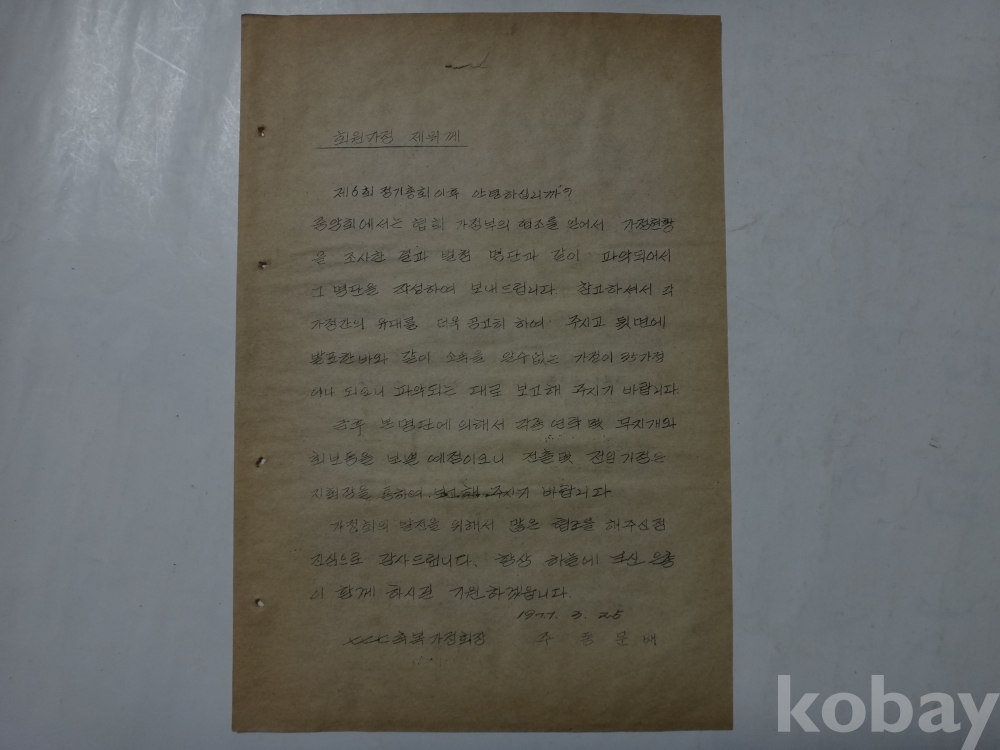 회원가정 제위께
제6회 정기총회이후 안녕하십니까?
중앙회에서는 협회 가정부의 협조를 얻어서 가정현황
을 조사한 결과 별첨 명단과 같이 파악되어서
그 명단을 작성하여 보내드립니다. 참고하셔서 각
가정간의 유대를 더욱 공고히 하여 주시고 뒷면에
발표한바와 같이 소속을 알수없는 가정이 35가정
이나 되오니 파악되는 대로 보고해 주시기 바랍니다.
금후 본 명단에 의해서 각종 연락 및 무지개와
회보등을 보낼 예정이오니 전출및 전입가정은
지회장을 통하여 보고해 주시기 바랍니다
가정회의 발전을 위해서 많은 협조를 해주신점
진심으로 감사드립니다. 항상 하늘에 은총
이 함께 하시길 기원하겠읍니다.
1977. 3. 25
축복가정회장 주
kobay